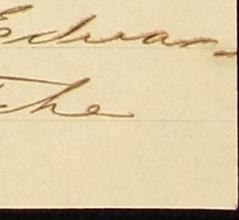 Edwar
The